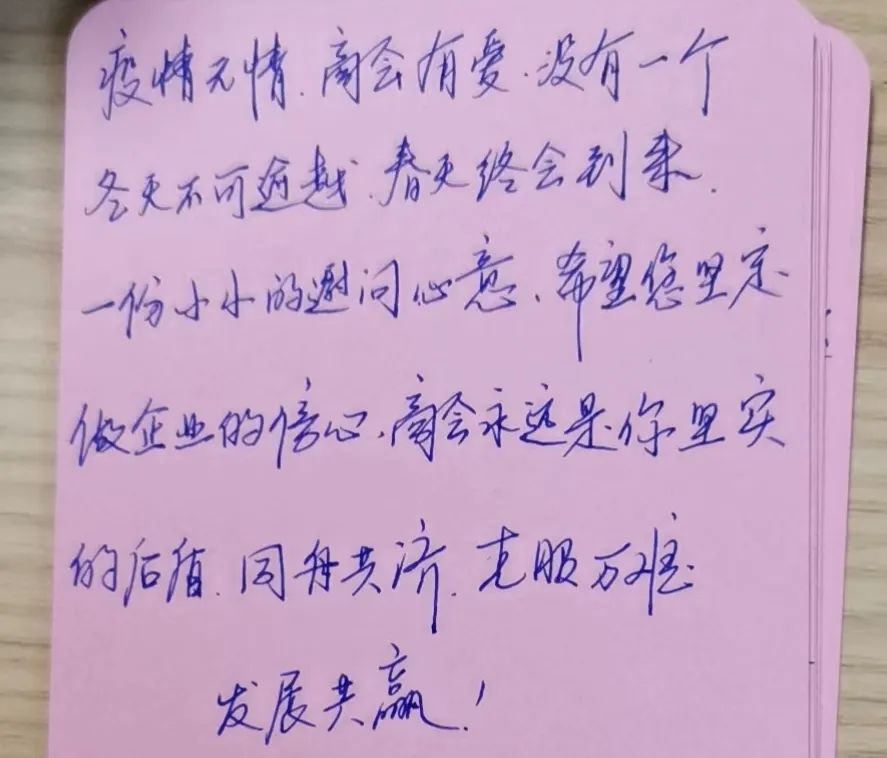 疫情无情.商会有爱.没有一个
冬天不可逾越.春天终会到来.
一份小小的慰问心意、希望您坚定
做企业的信心.商会永远是你坚实
的后盾.同舟共济.克服万难
发展共赢!